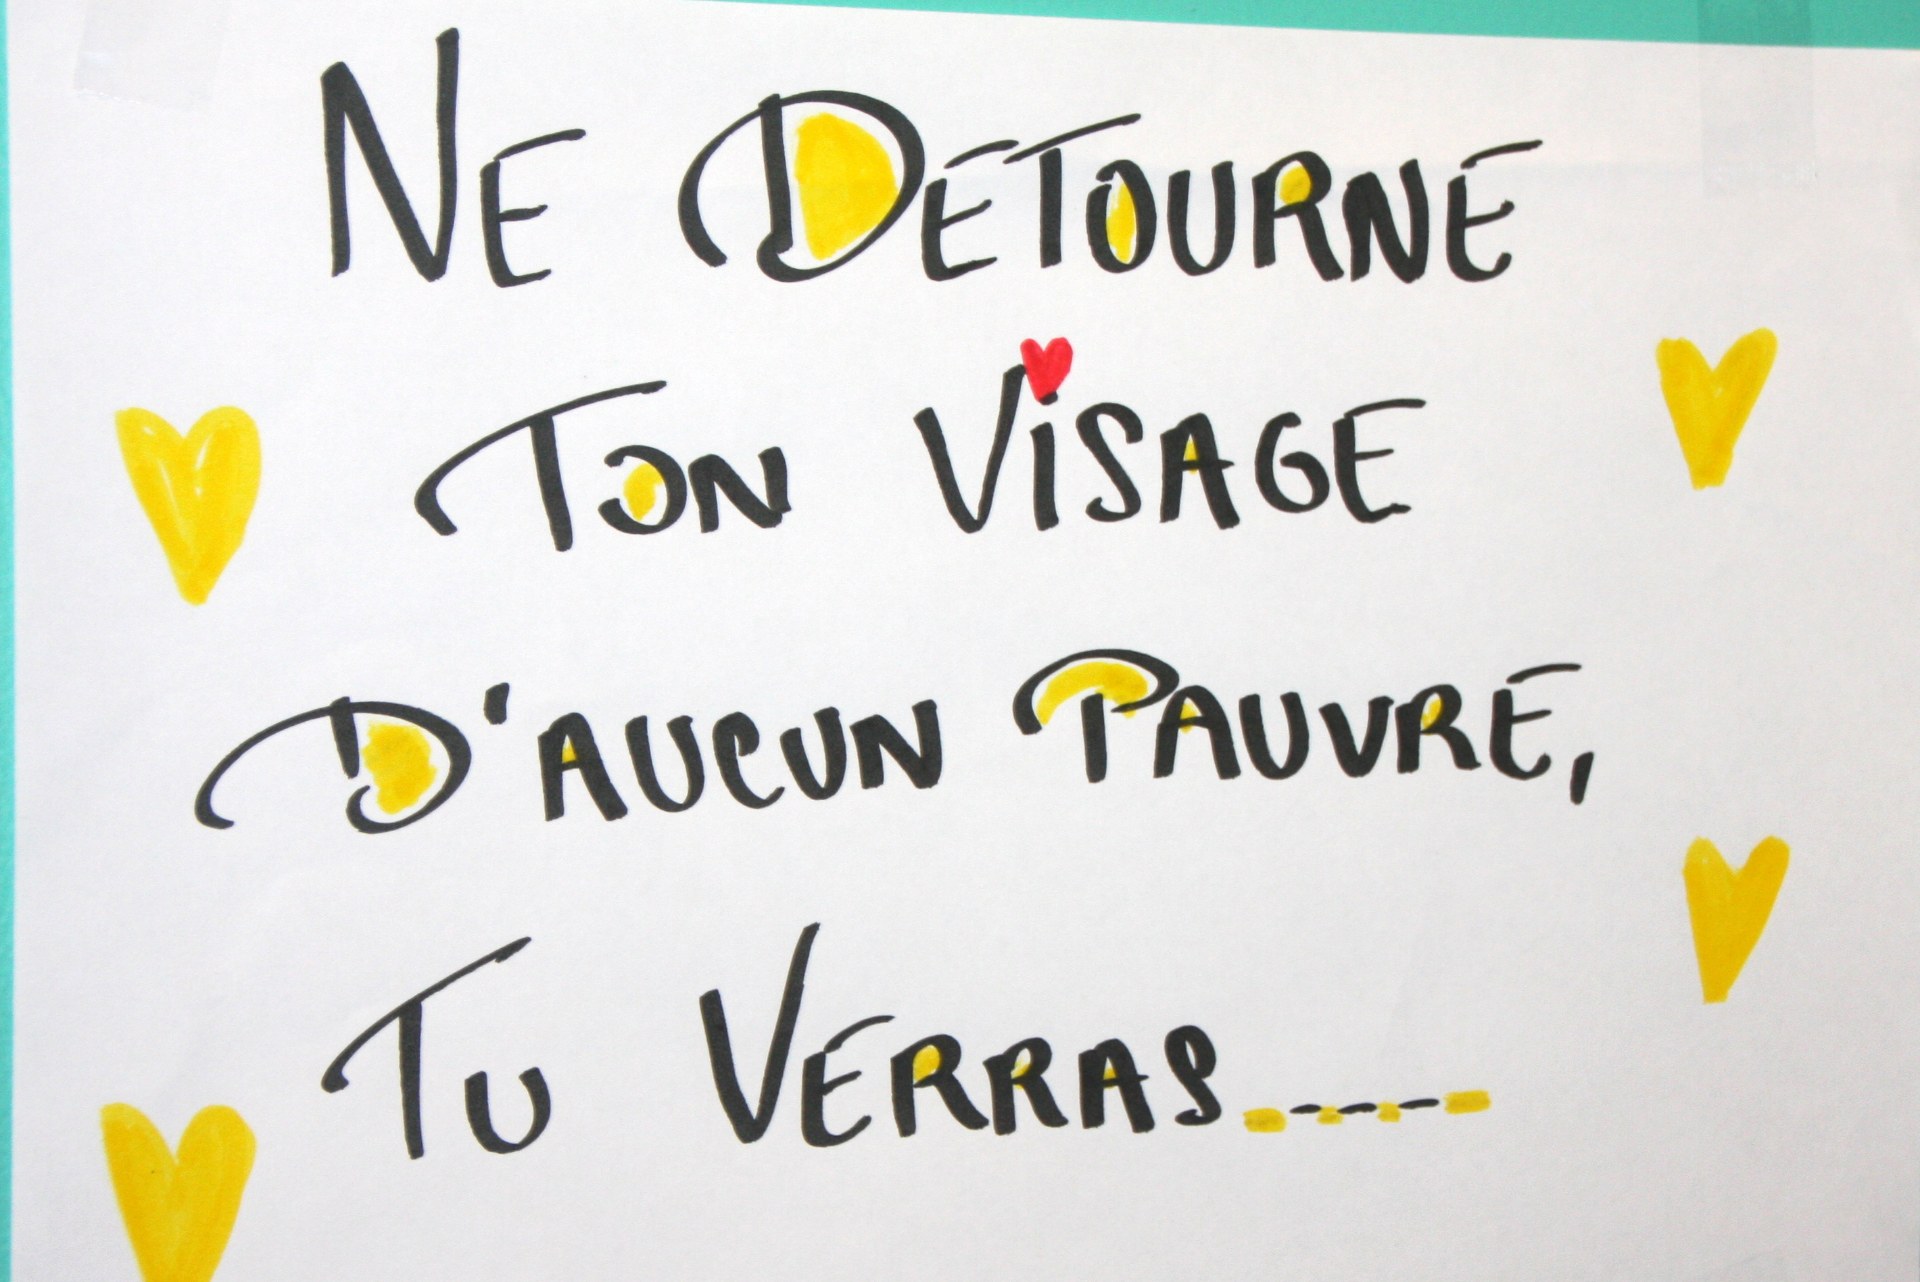 NE DETOURNE
TON VISAGE
D'AUCUN PAUVRE,
TU VERRAS.....